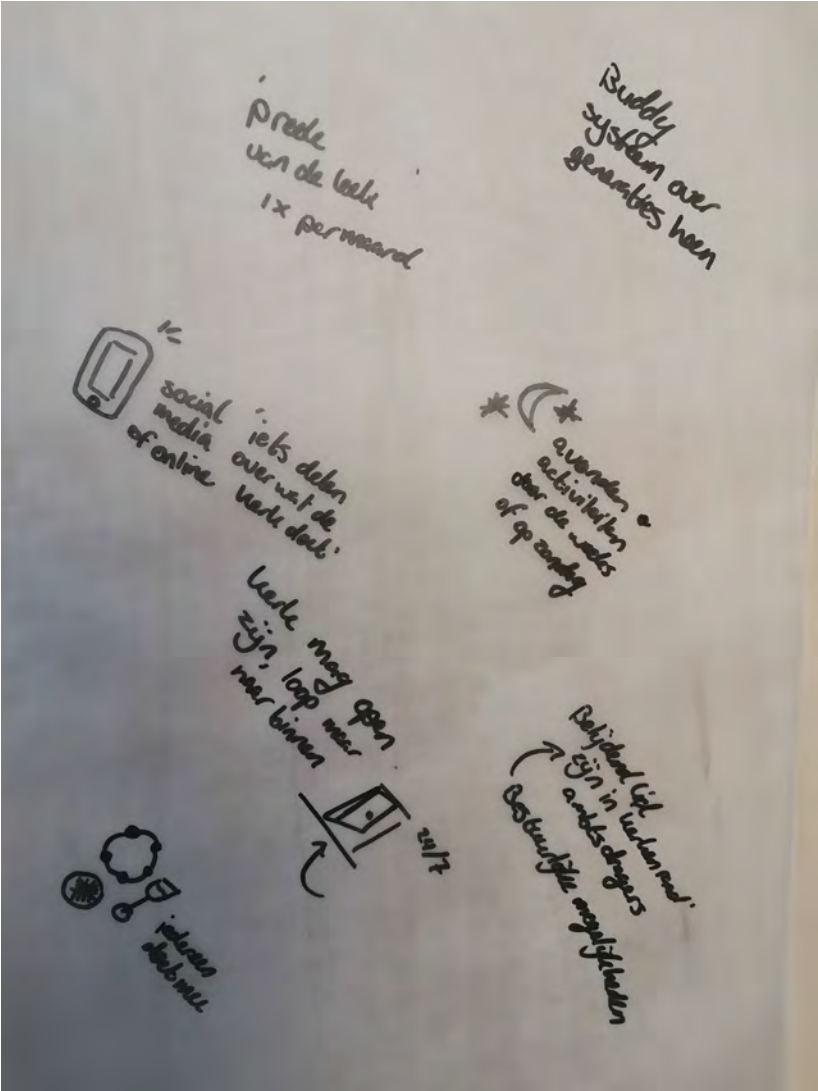 preek
van de leek
1x per maand
Buddy
systeem over
generaties heen
social
media
of online
iets delen
over wat de
kerk doet.
avonden
activiteiten
door de weeks
of op zondag
kerk mag open
zijn, loop maar
naar binnen
24/7
Belijdend lid
zijn in kerkenraad.
ambtsdragers
Bestuurlijke mogelijkheden
iedereen
doet mee